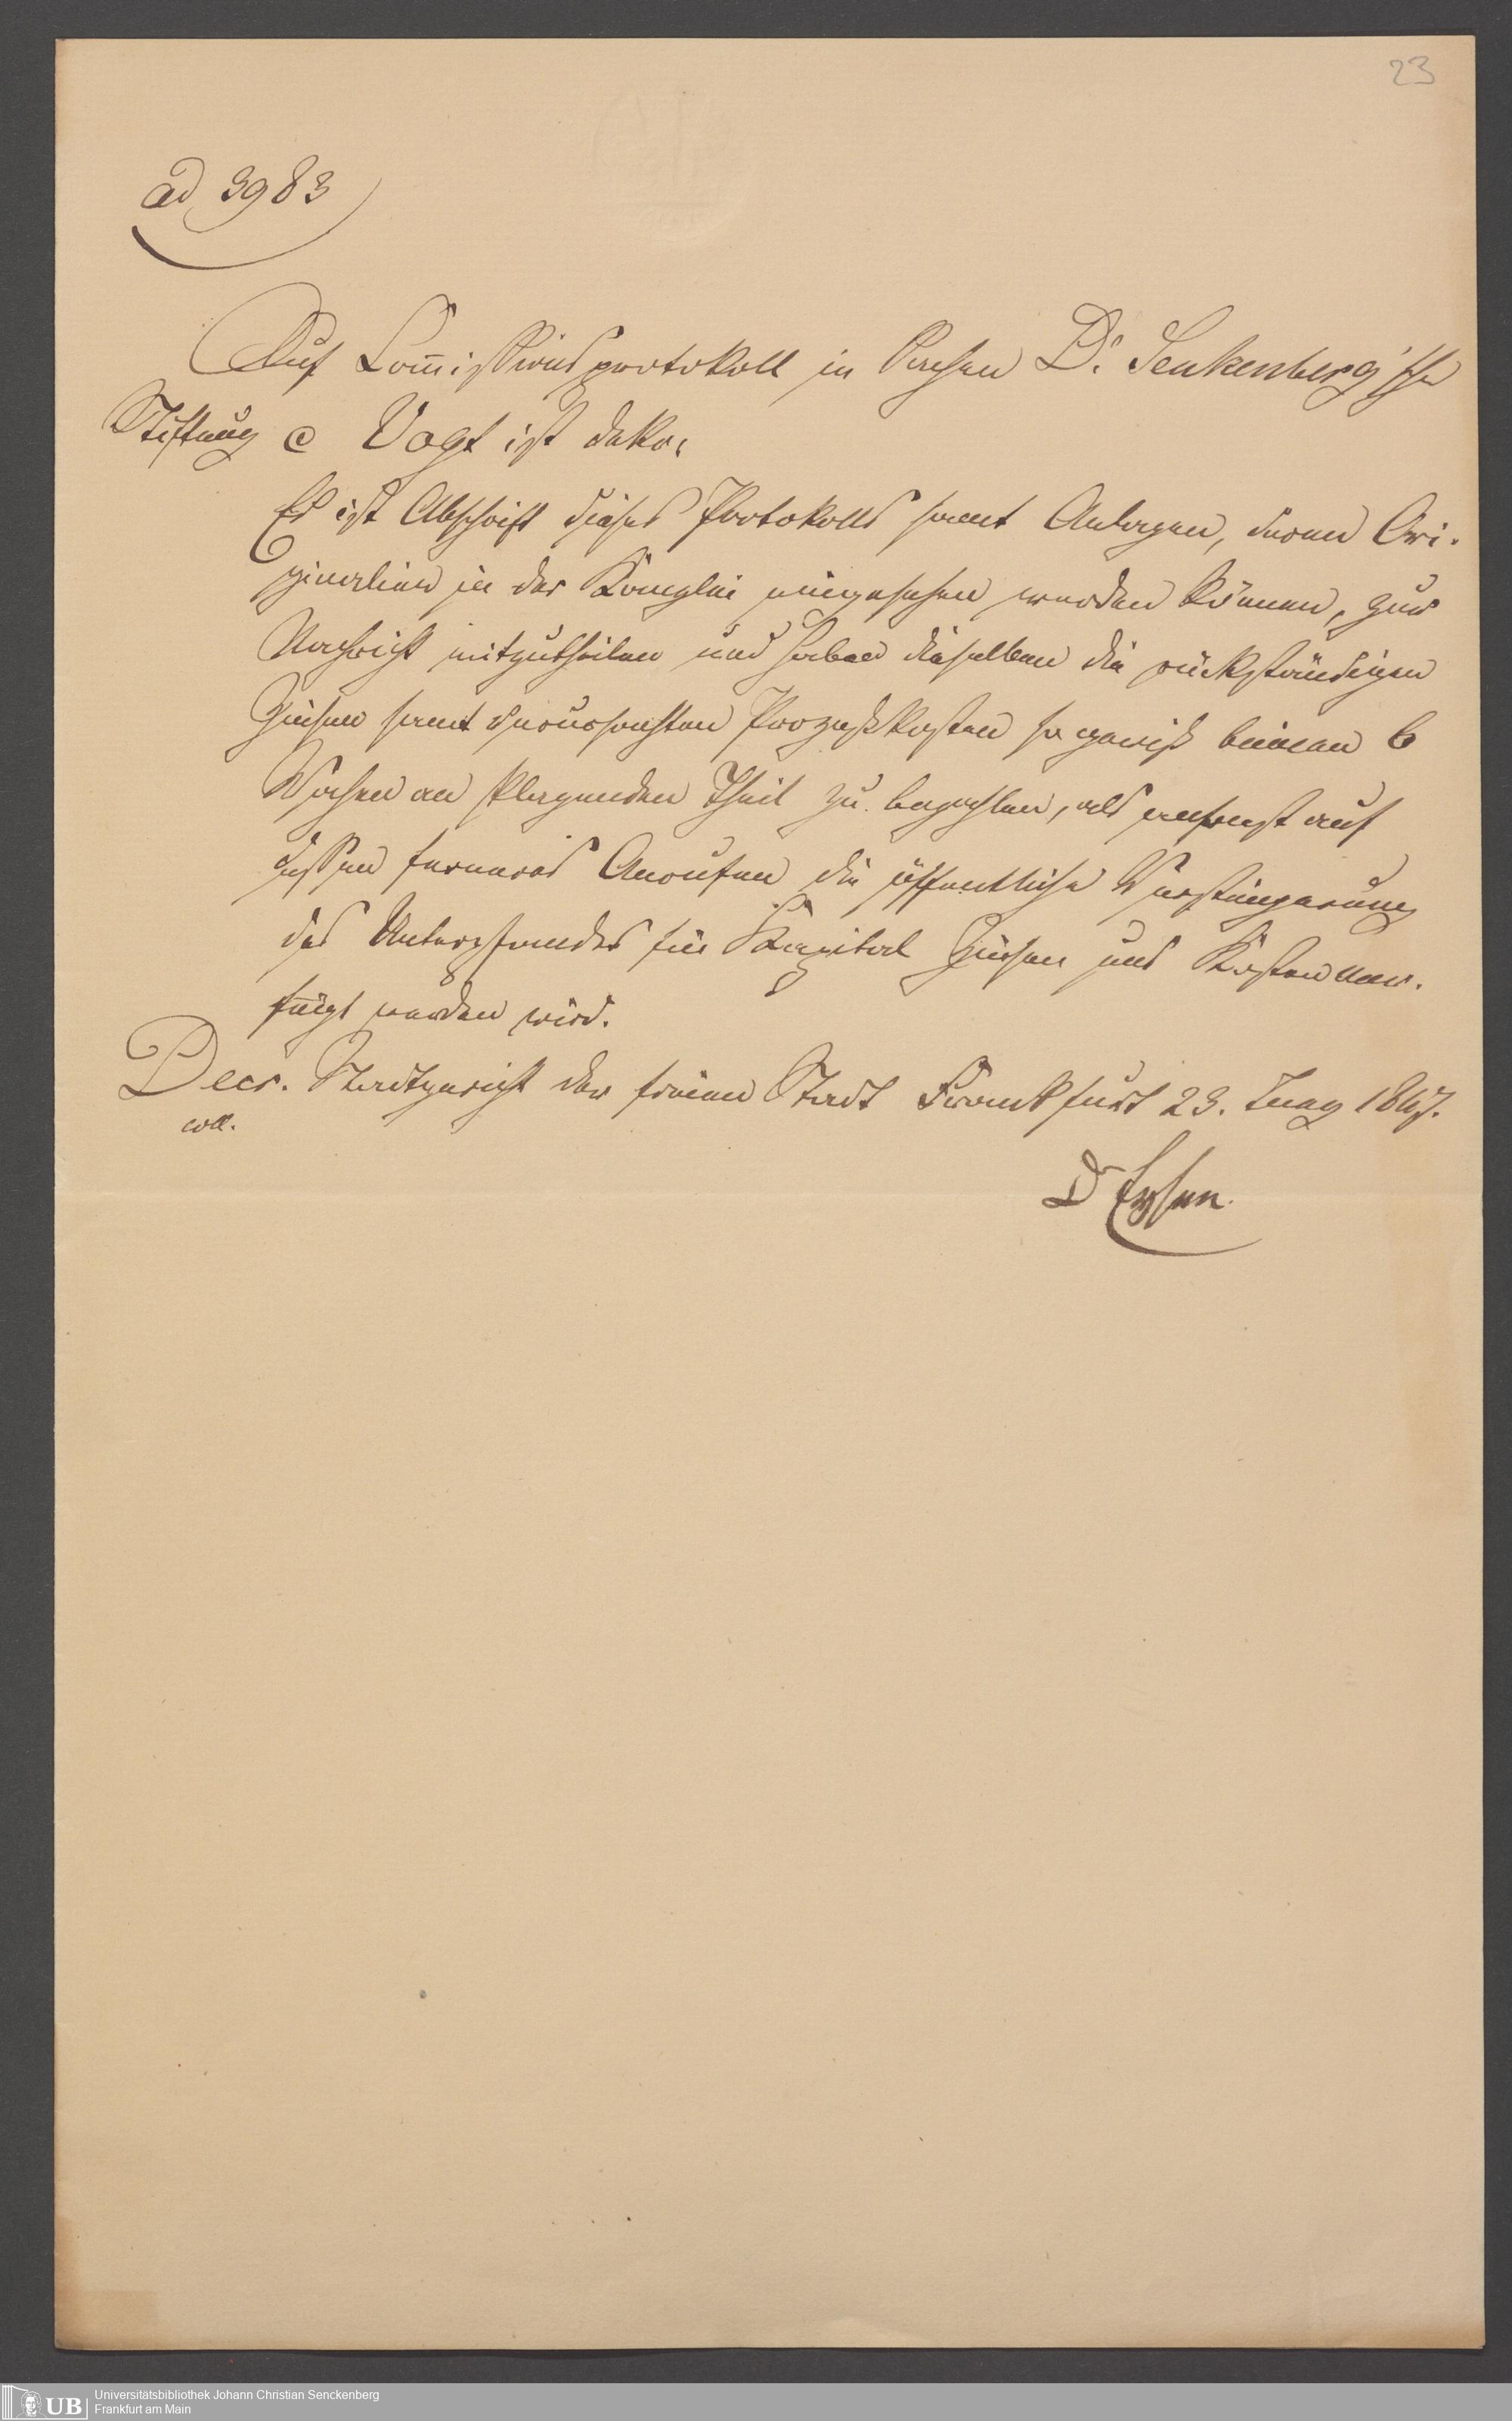 23
ad 3983
Auf Com̅issionsprotokoll in Sachen Dr. Senkenberg'sche
Stiftung c Vogt ist dekr.
Es ist Abschrift dieses Protokolls samt Anlagen, deren Ori-
ginalien in der Kanzlei eingesehen werden können, zur
Nachricht mitzutheilen und haben dieselben die rückständigen
Zinsen samt verursachten Prozeßkosten so gewiß binnen 6
Wochen an klagenden Theil zu bezahlen, als sonst auf
dessen ferneres Anrufen die öffentliche Versteigerung
des Unterpfandes für Kapital Zinsen und Kosten ver-
fügt werden wird.
Decr. Stadtgericht der freien Stadt Frankfurt 23. 1847.
coll.
Dr
Universitätsbibliothek Johann Christian Senckenberg
Frankfurt am Main
UB